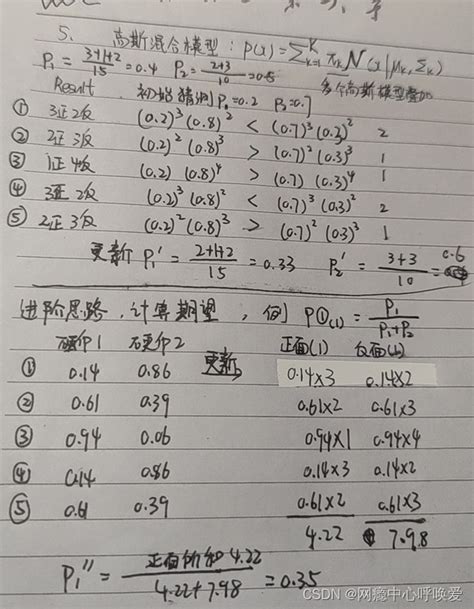 5. 高斯混合模型：p(x)=∑_{k=1}^{K} π_k N(x|μ_k, Σ_k)
P₁=(3+1+2)/15=0.4 P₂=(2+3)/10=0.5 多个高斯模型叠加
Result 初始猜测 P₁=0.2 P₂=0.7
① 3正2反 (0.2)³(0.8)² < (0.7)³(0.3)² 2
② 2正3反 (0.2)²(0.8)³ > (0.7)²(0.3)³ 1
③ 1正4反 (0.2)(0.8)⁴ > (0.7)(0.3)⁴ 1
④ 3正2反 (0.2)³(0.8)² < (0.7)³(0.3)² 2
⑤ 2正3反 (0.2)²(0.8)³ > (0.7)²(0.3)³ 1
更新 P₁'=(2+1+2)/15=0.33 P₂'=(3+3)/10=0.6
进阶思路，计算期望，例 P①₍₁₎=P₁/(P₁+P₂)
硬币1 硬币2 更新 正面(1) 反面(1)
① 0.14 0.86 0.14×3 0.14×2
② 0.61 0.39 0.61×2 0.61×3
③ 0.94 0.06 0.94×1 0.94×4
④ 0.14 0.86 0.14×3 0.14×2
⑤ 0.61 0.39 0.61×2 0.61×3
4.22 7.98
P₁''=正面的和4.22/(4.22+7.98)=0.35
CSDN @网瘾中心呼唤爱